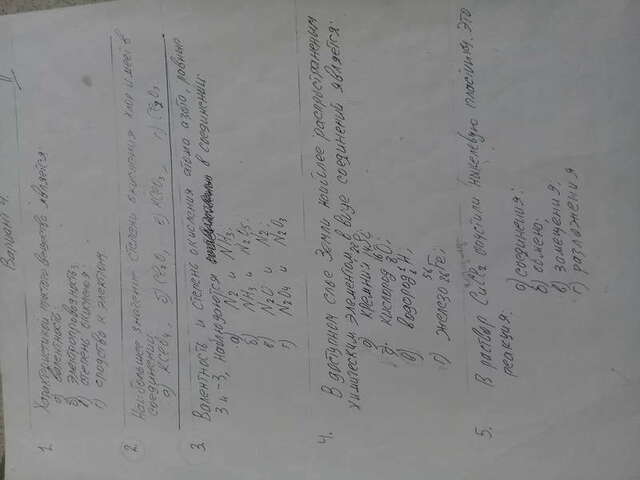 Вариант 4.
1. Характеристикой простого вещества является
а) валентность
б) электроотрицательность;
в) степень окисления
г) сродство к электрону.
2 Наибольшее значение степени окисления хлор имеет в
соединении:
а) KClO4, б) Cl2O, в) KClO3, г) Cl2O3
3. Валентность и степень окисления атома азота, равные
3 и -3, наблюдаются в соединении:
а) N2 и NH3;
б) NH3 и N2O5;
в) N2O и N2;
г) N2O4 и N2O3
4. В доступном слое Земли наиболее распространенным
химическим элементом в виде соединений является:
а) кремний
б. кислород
в) водород
г) железо 56 26 Fe.
5. В раствор CuCl2 опустили никелевую пластинку. Это
реакция:
а) соединения:
б) обмена.
в) замещения.
г) разложения